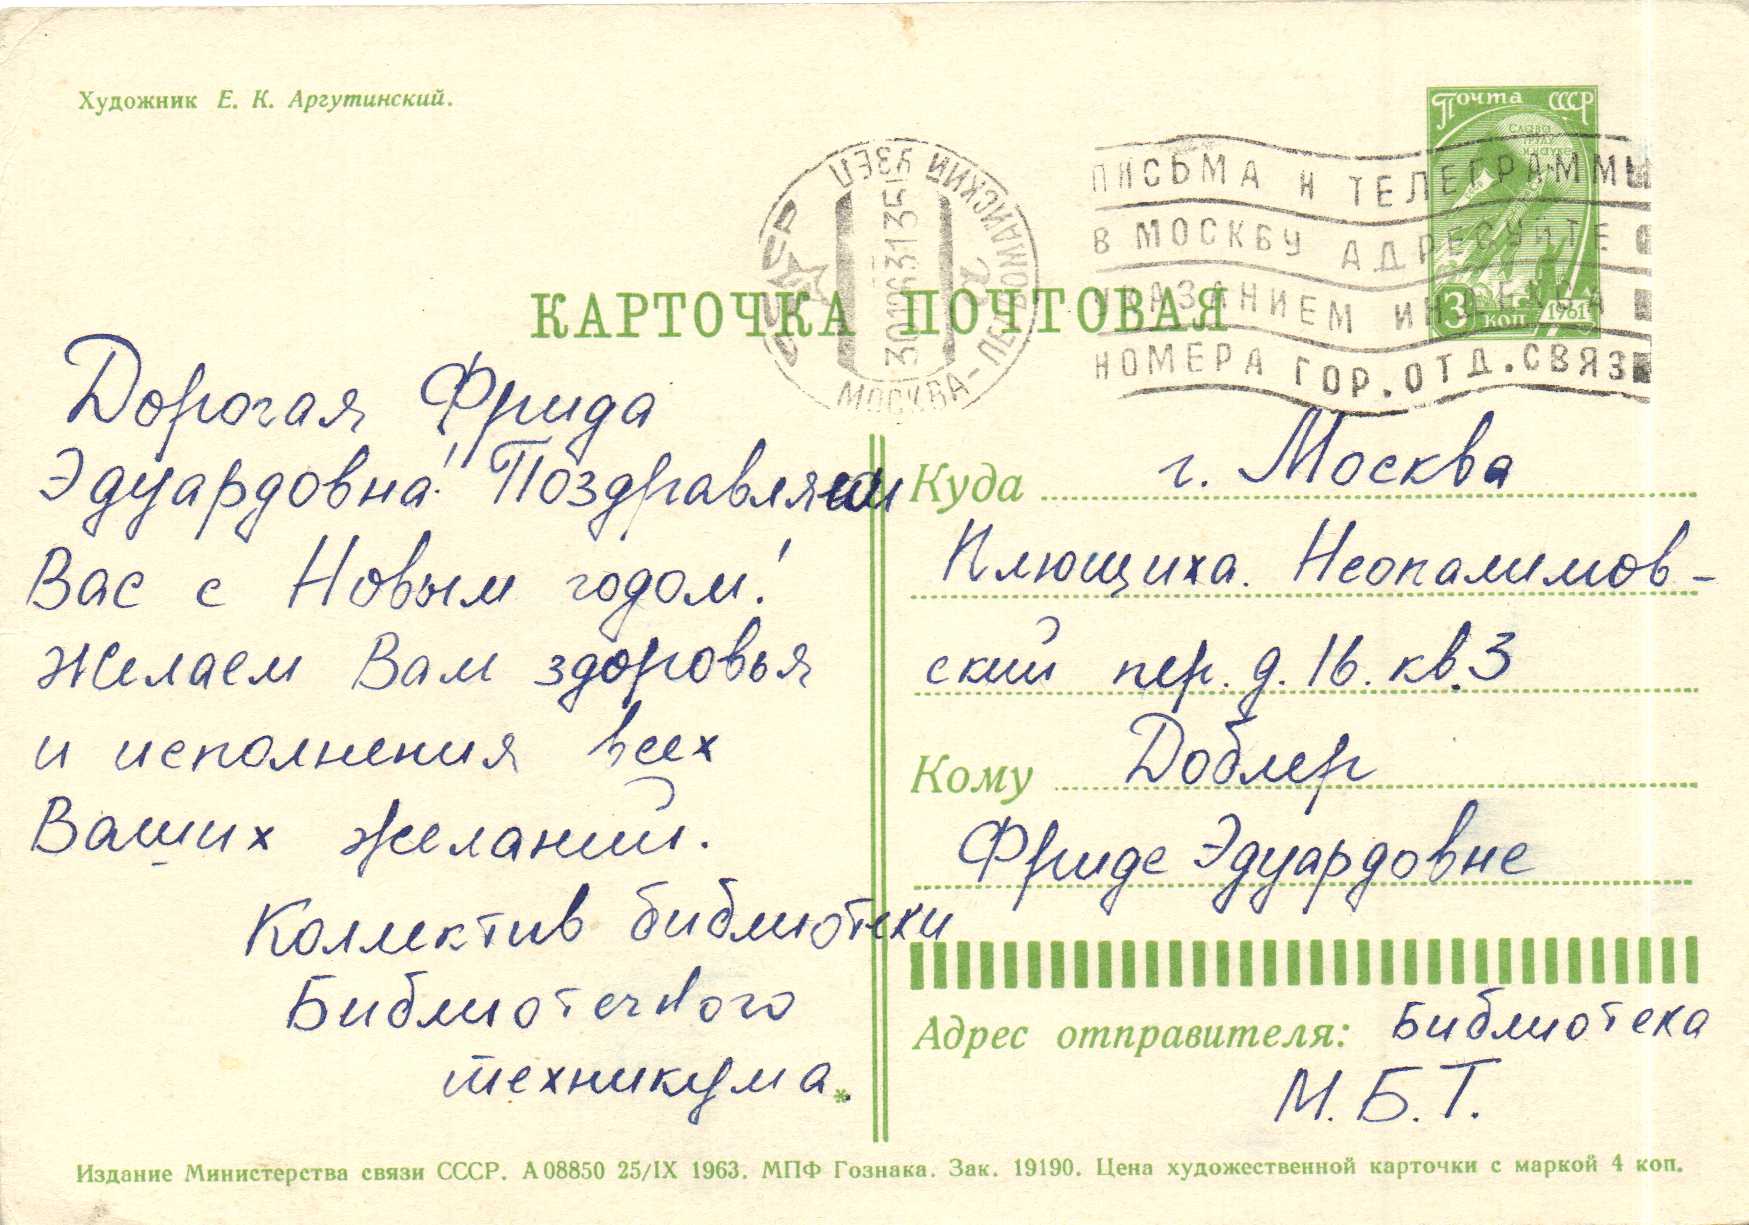 Художник Е. К. Аргутинский.
Почта СССР
СЛАВА
ТРУДУ
И НАУКЕ
3 коп 1961
СССР
МОСКВА-ПЕРВОМАЙСКИЙ УЗЕЛ
30126313
ПИСЬМА И ТЕЛЕГРАММЫ
В МОСКВУ АДРЕСУЙТЕ С
УКАЗАНИЕМ ИНДЕКСА
НОМЕРА ГОР.ОТД.СВЯЗ
КАРТОЧКА ПОЧТОВАЯ
Дорогая Фрида
Эдуардовна! Поздравляем
Вас с Новым годом!
Желаем Вам здоровья
и исполнения всех
Ваших желаний.
Коллектив библиотеки
Библиотечного
техникума.
Куда г. Москва
Плющиха. Неопалимов-
ский пер. д. 16. кв. 3
Кому Доблер
Фриде Эдуардовне
Адрес отправителя: Библиотека
М.Б.Т.
Издание Министерства связи СССР. А 08850 25/IX 1963. МПФ Гознака. Зак. 19190. Цена художественной карточки с маркой 4 коп.